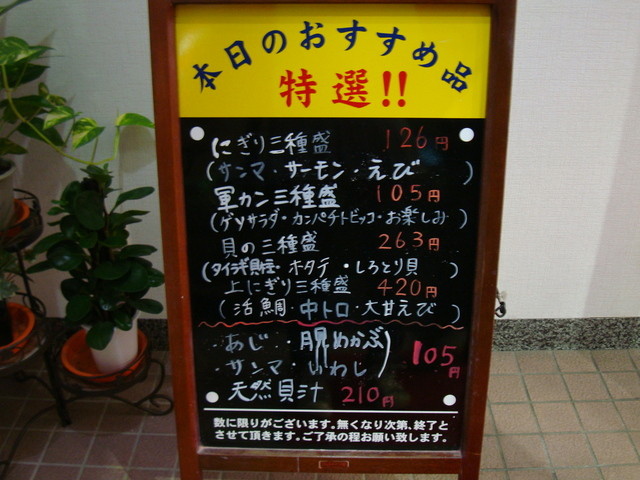 本日のおすすめ品
特選!!
にぎり三種盛 126円
(サンマ・サーモン・えび)
軍カン三種盛 105円
(ゲソサラダ・カンパチトビッコ・お楽しみ)
貝の三種盛 263円
(タイラギ貝・ホタテ・しろとり貝)
上にぎり三種盛 420円
(活鯛・中トロ・大甘えび)
・あじ・めかぶ
・サンマ・いわし 105円
天然貝汁 210円
数に限りがございます。無くなり次第、終了と
させて頂きます。ご了承の程お願い致します。